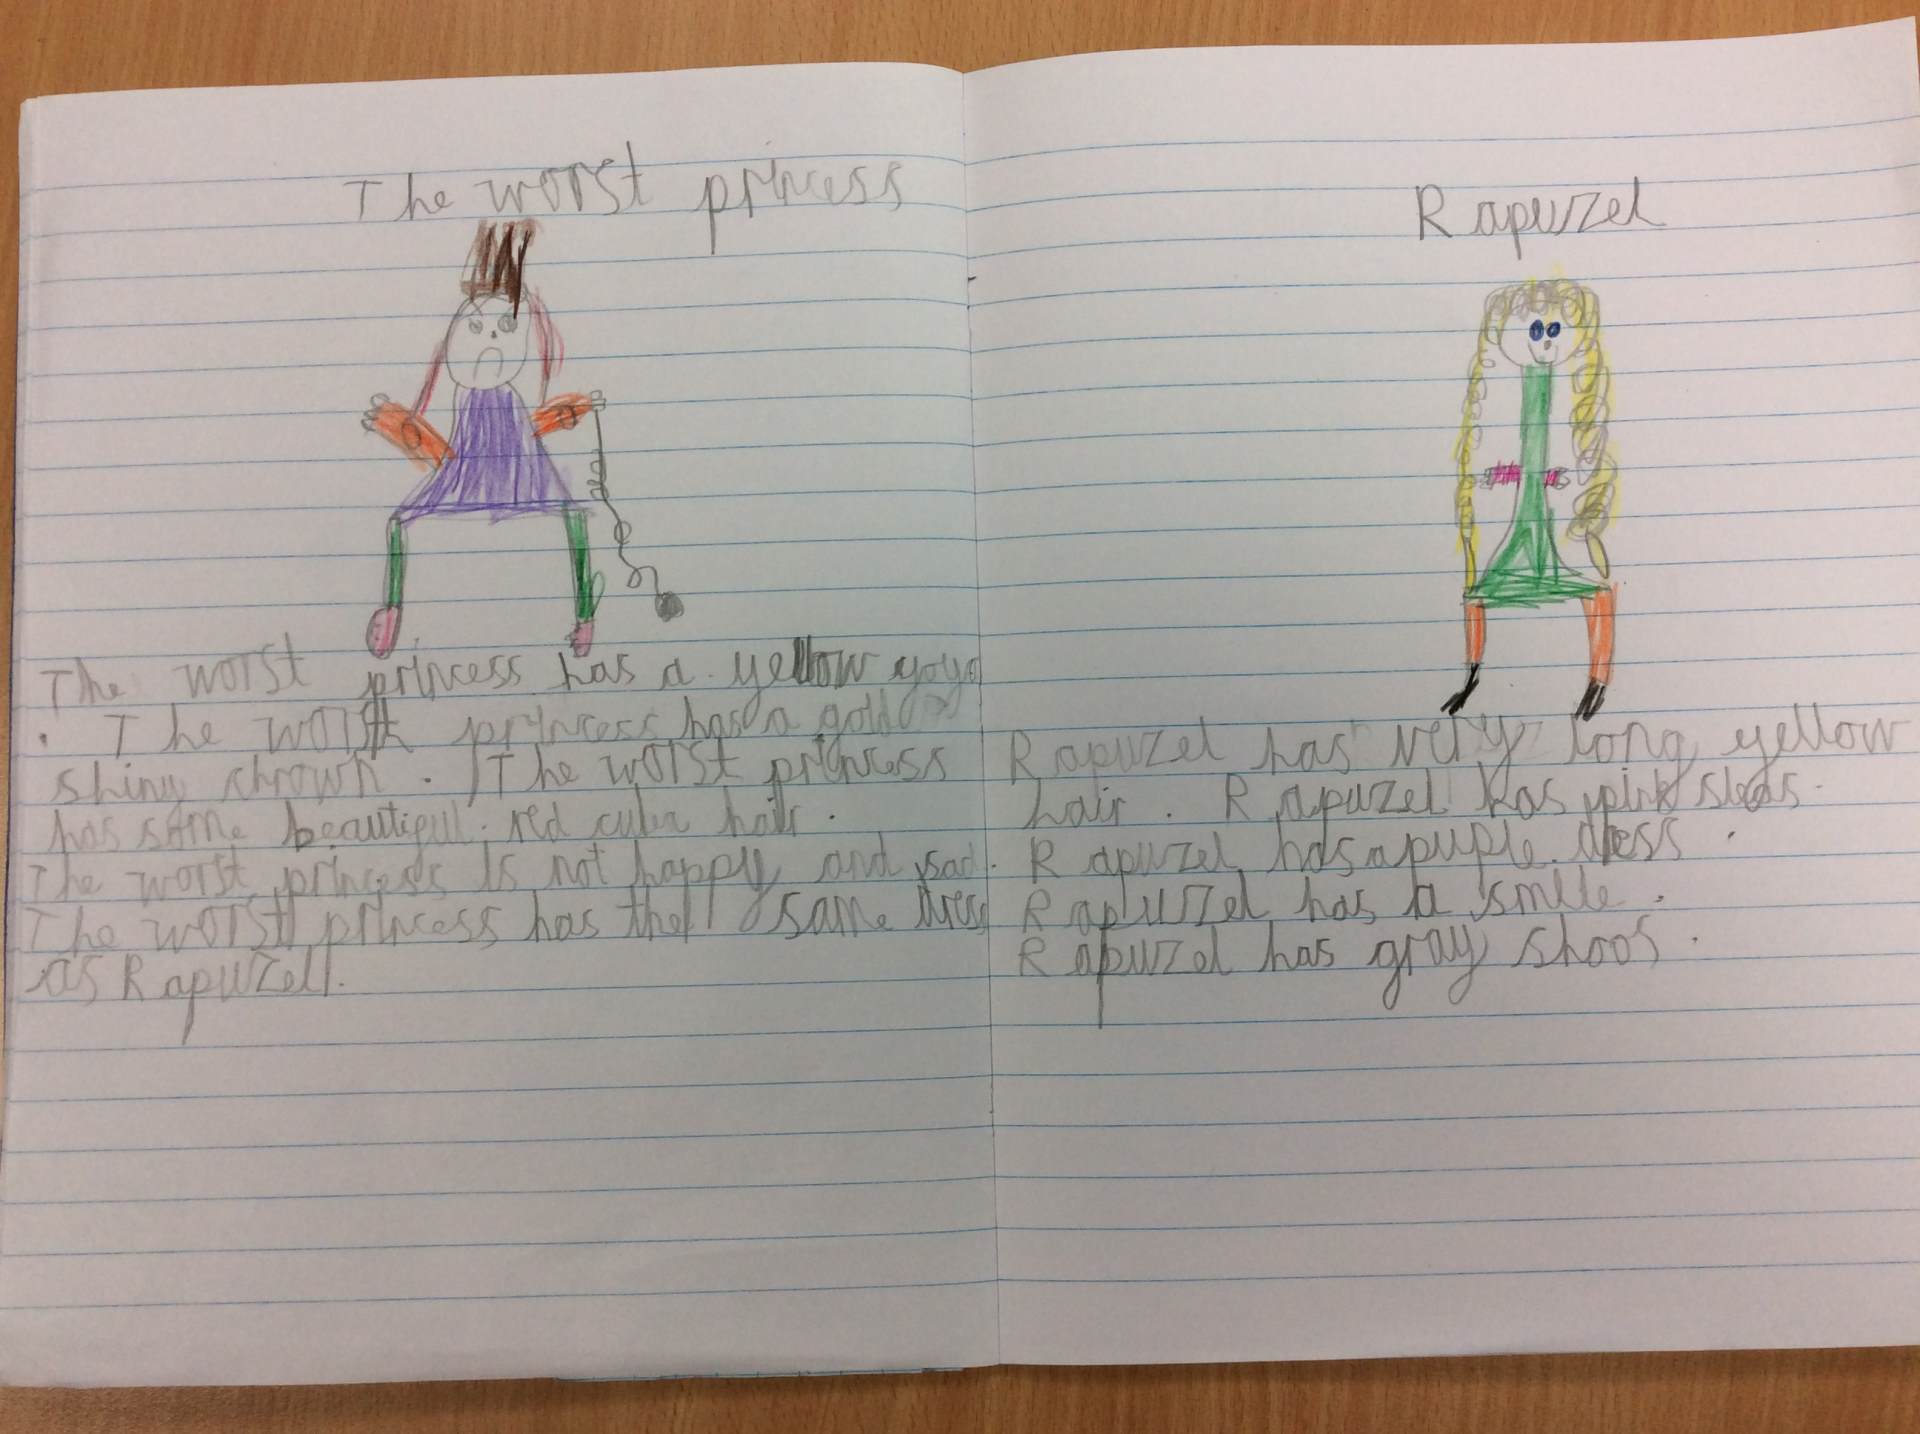 The worst princess
The worst princess has a yellow yoyo
. The worst princess has a gold
shiny chrown . The worst princess
has some beautiful red culer hair .
The worst princess is not happy and sad.
The worst princess has the same dress
as Rapuzel.
Rapuzel
Rapuzel has very long yellow
hair . Rapuzel has pink
Rapuzel has a puple dress .
Rapuzel has a smile .
Rapuzel has gray shoos .